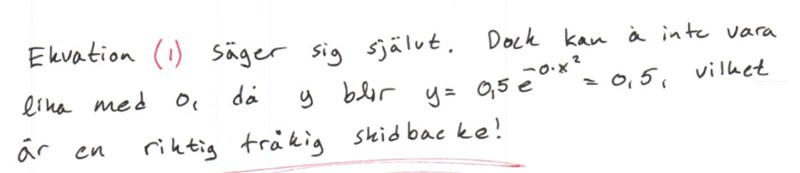 Ekvation (1) säger sig självt. Dock kan a inte vara
lika med 0, då y blir y = 0,5 e^{-0·x^2} = 0,5, vilket
är en riktig tråkig skidbacke!